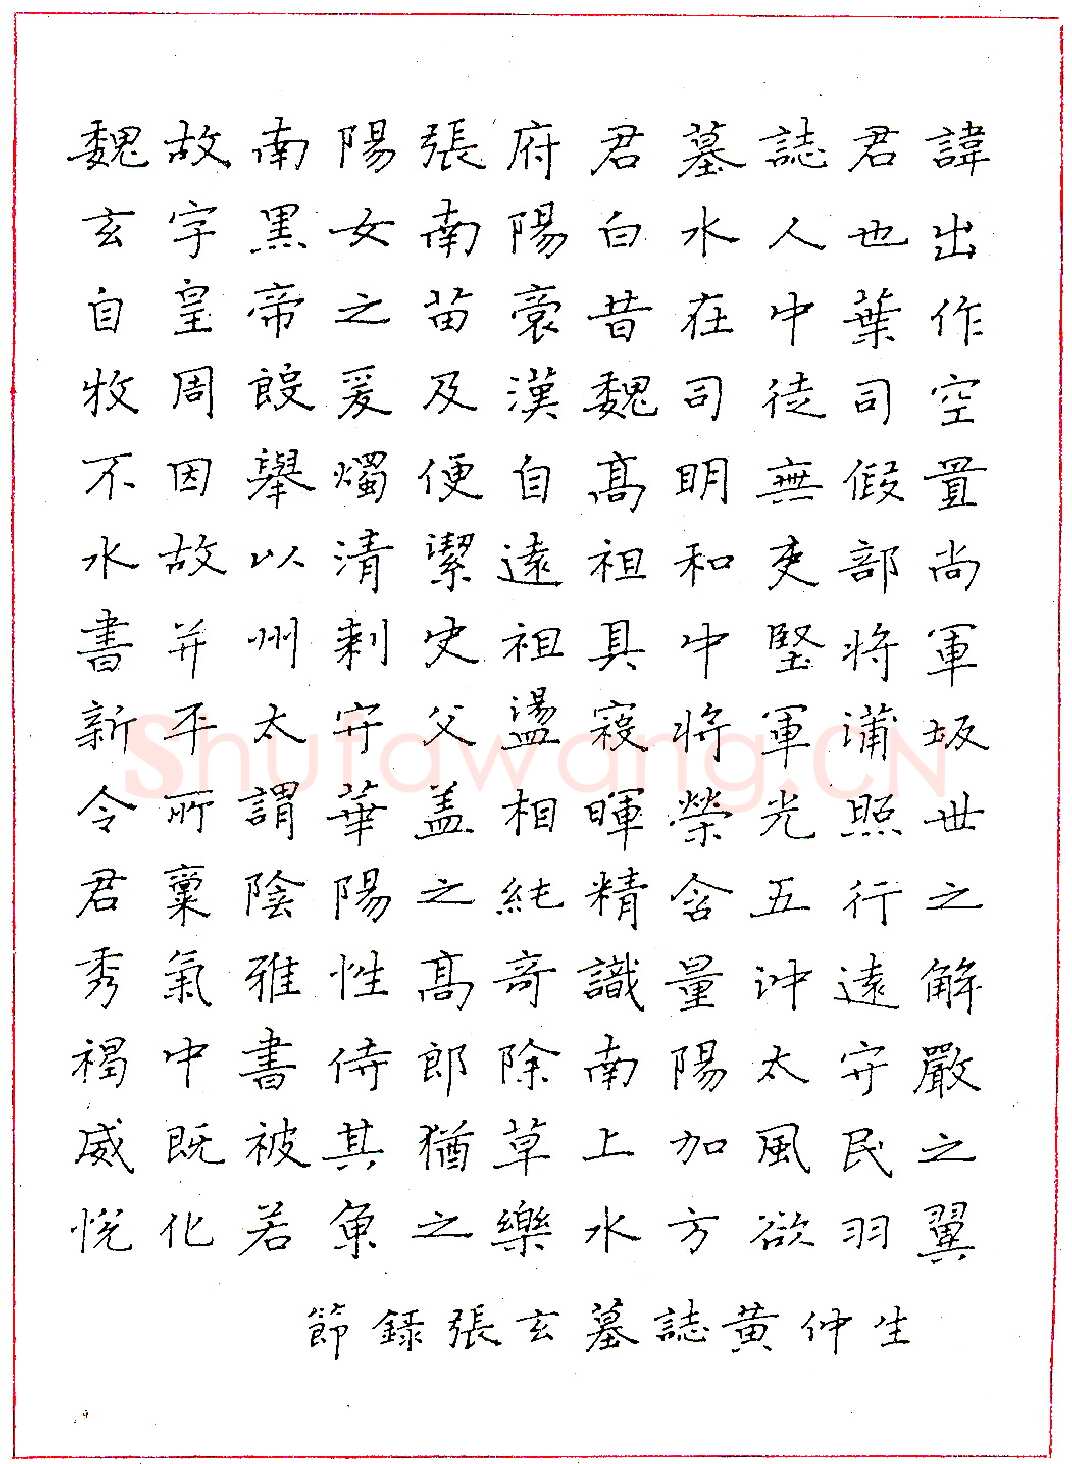 魏故南陽張府君墓誌君諱
玄字黑女南陽白水人也出
自皇帝之苗裔昔在中葉作
牧周殷爰及漢魏司徒司空
不因舉燭便自高明無假置
水故以清潔遠祖和吏部尚
書并州刺史祖具中堅將軍
新平太守父盪寇將軍蒲坂
令所謂華蓋相暉榮光照世
君稟陰陽之純精含五行之
秀氣雅性高奇識量沖遠解
褐中書侍郎除南陽太守嚴
威既被其猶草上加風民之
悅化若魚之樂水方欲羽翼
節錄張玄墓誌黃仲生
Shufawang.CN